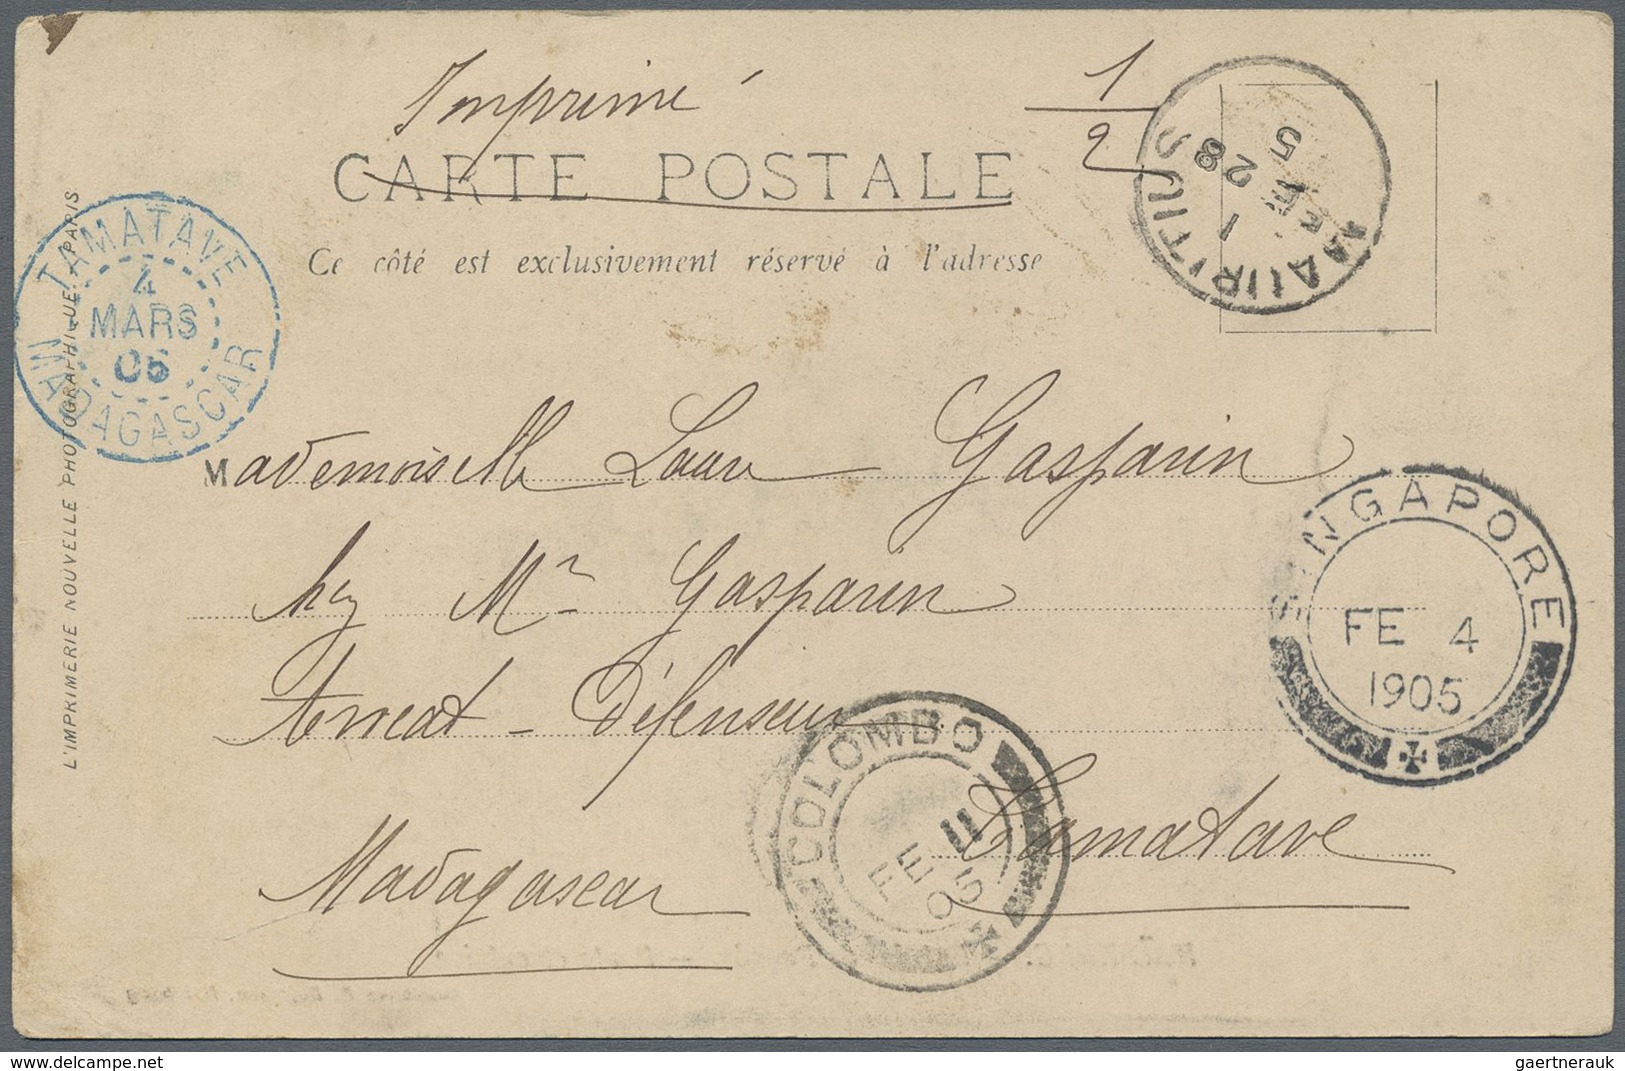 Imprimé
1/2
CARTE POSTALE
Ce côté est exclusivement réservé à l'adresse
MAURITIUS
1
FE 28
5
TAMATAVE
4
MARS
05
MADAGASCAR
L'IMPRIMERIE NOUVELLE PHOTOGRAPHIQUE, PARIS
Mademoiselle Laure Gasparin
chez Mr Gasparin
Avocat - Défenseur
Tamatave
Madagascar
SINGAPORE
FE 4
1905
COLOMBO
FE 11
05
gaertnerauk